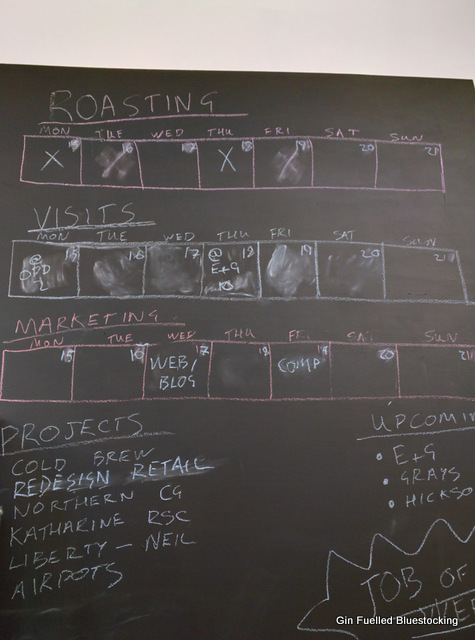 ROASTING
MON TUE WED THU FRI SAT SUN
15 16 17 18 19 20 21
X X
VISITS
MON TUE WED THU FRI SAT SUN
15 16 17 18 19 20 21
@ @
E+G
MARKETING
MON TUE WED THU FRI SAT SUN
15 16 17 18 19 20 21
WEB/ COMP
BLOG
PROJECTS
COLD BREW
REDESIGN RETAIL
NORTHERN CG
KATHARINE RSC
LIBERTY - NEIL
AIRPOTS
UPCOMIN
• E+G
• GRAYS
• HICKSO
JOB OF
Gin Fuelled Bluestocking